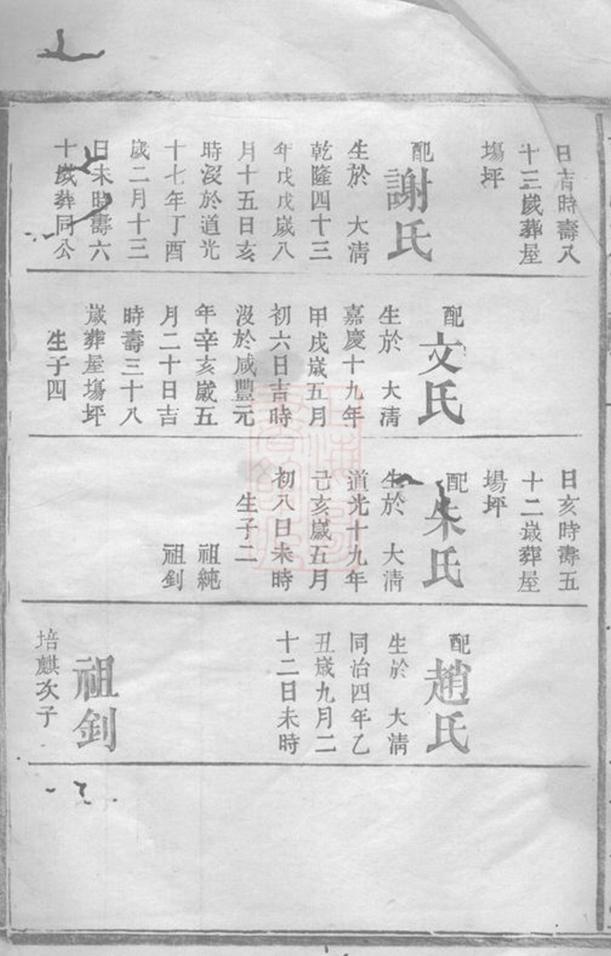 日吉時壽八
十三嵗葬屋
塲坪
配
謝氏
生於 大淸
乾隆四十三
年戊戌嵗八
月十五日亥
時沒於道光
十七年丁酉
嵗二月十三
日未時壽六
十嵗葬同公
配
文氏
生於 大淸
嘉慶十九年
甲戌嵗五月
初六日吉時
沒於咸豐元
年辛亥嵗五
月二十日吉
時壽三十八
嵗葬屋塲坪
生子四
日亥時壽五
十二嵗葬屋
塲坪
配
朱氏
生於 大淸
道光十九年
己亥嵗五月
初八日未時
生子二
祖純
祖釗
配
趙氏
生於 大淸
同治四年乙
丑嵗九月二
十二日未時
祖釗
培麒次子